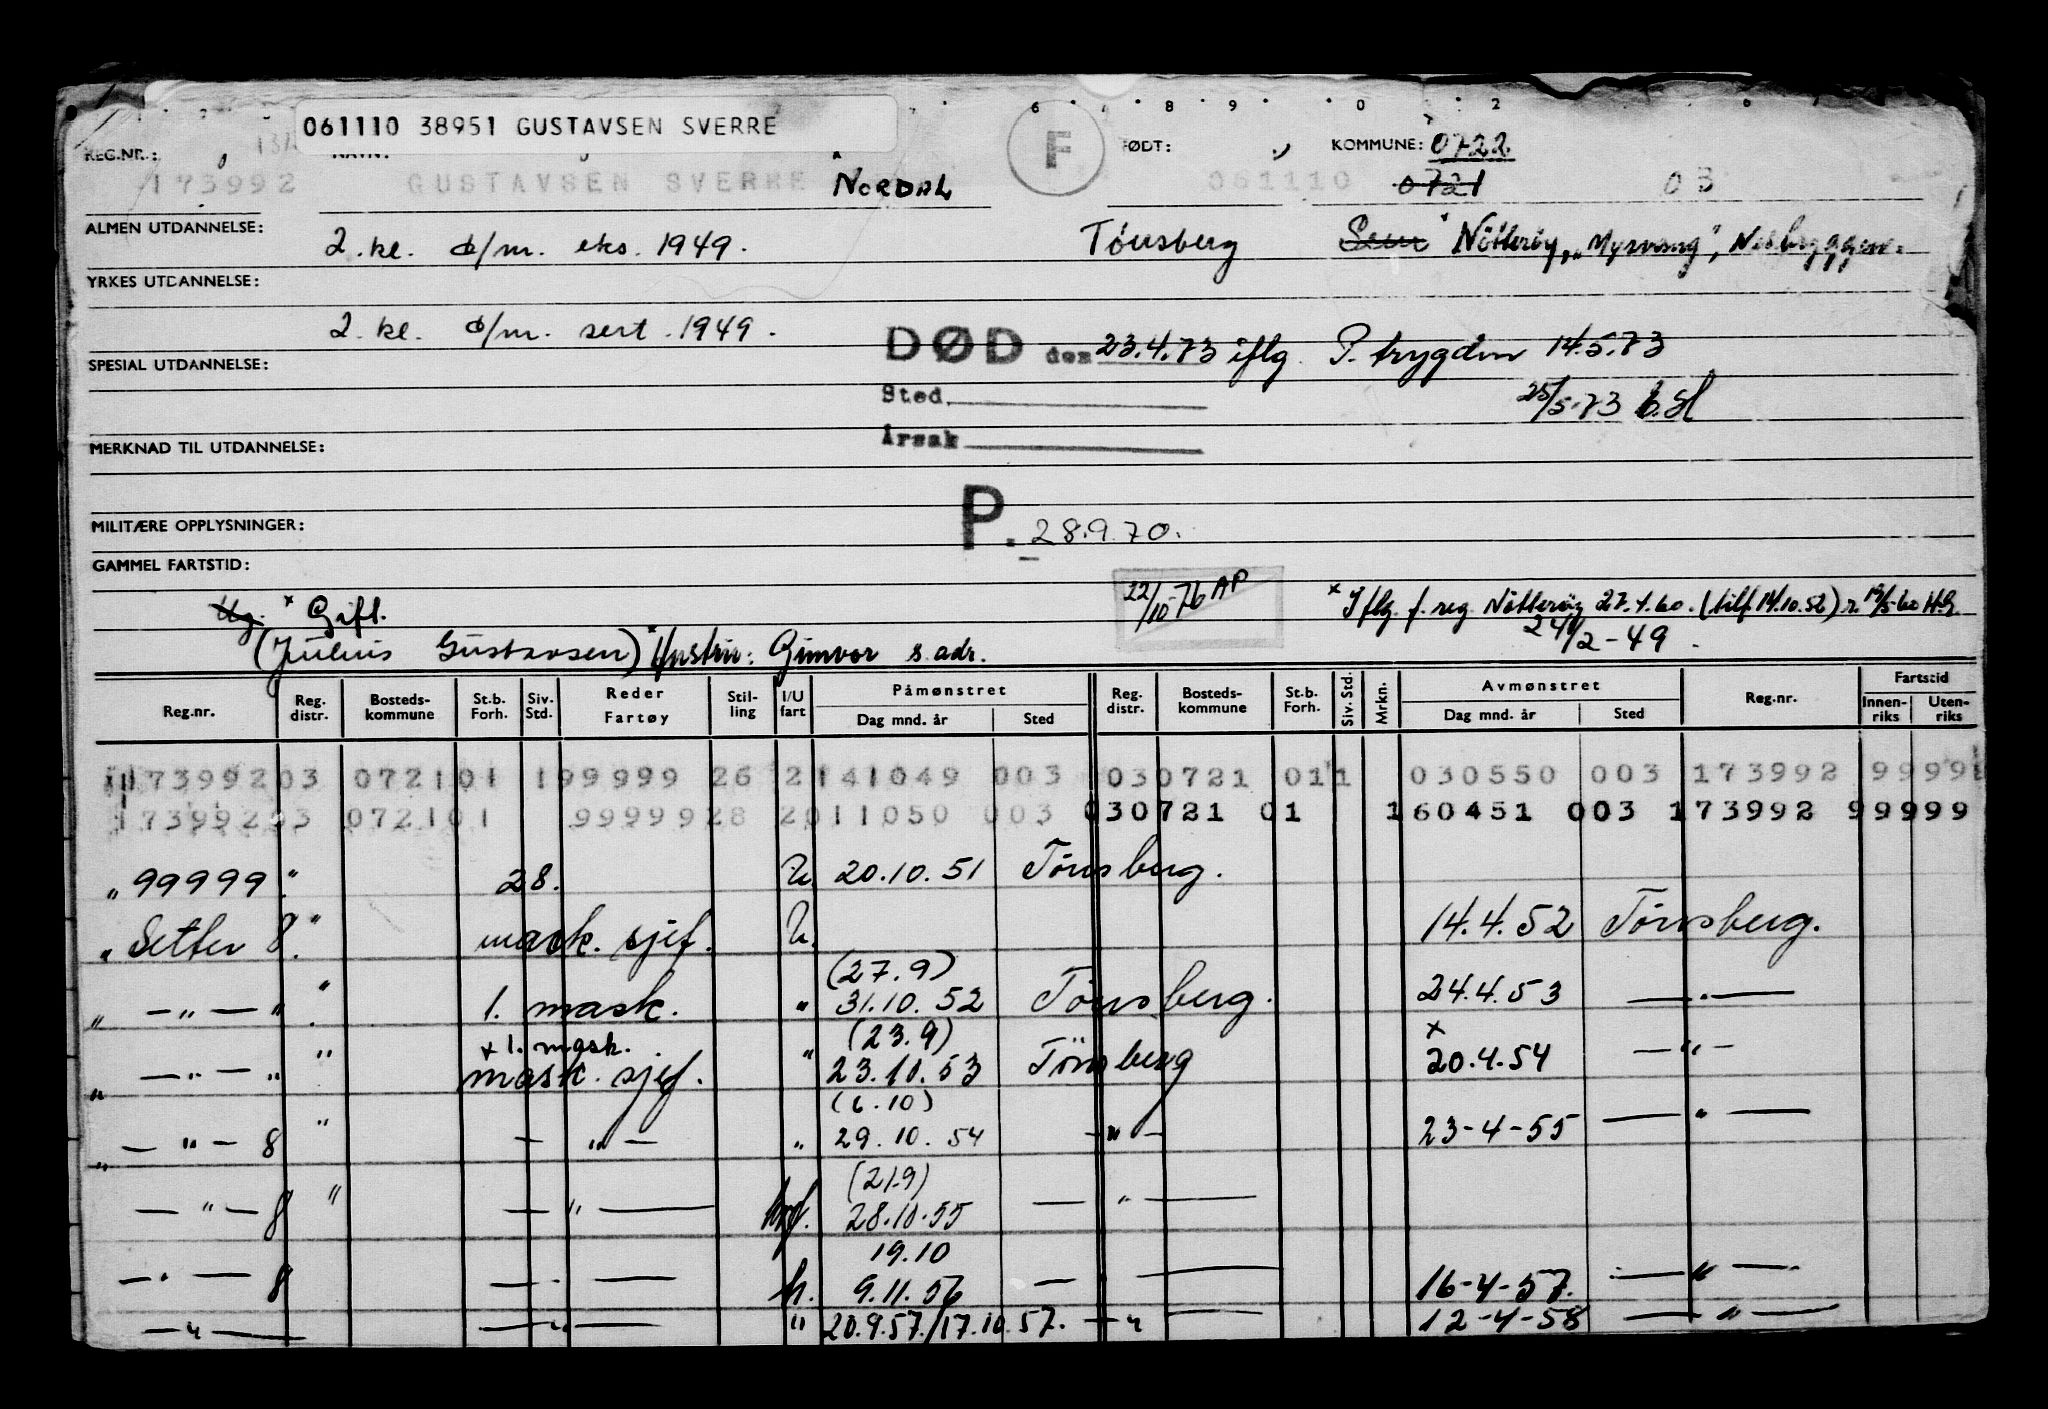 6 . . 8 9 . . 0 . 2
061110 38951 GUSTAVSEN SVERRE
REG.NR.: NAVN: F FØDT: KOMMUNE: 0722
173992 GUSTAVSEN SVERRE NORDAL 061110 0721 03
ALMEN UTDANNELSE: 2. kl. d/m. eks. 1949. Tönsberg Sem Nötteröy, „Myrvang", Nesbryggen.
YRKES UTDANNELSE: 2. kl. d/m. sert. 1949.
DØD den 23.4.73 iflg. P. trygden 14.5.73
SPESIAL UTDANNELSE:
Sted 25/5-73
Årsak
MERKNAD TIL UTDANNELSE:
MILITÆRE OPPLYSNINGER: P. 28.9.70.
GAMMEL FARTSTID:
Ug. x Gift. 22/10-76 AP x Iflg f. reg Nötteröy 27.4.60. (tilf. 14.10.52) r. 12/5-60 H.G.
(Julius Gustavsen) x Hustru: Gunvor s. adr. 24/2-49.
Reg.nr. Reg. distr. Bosteds-kommune St.b. Forh. Siv. Std. Reder Fartøy Stil-ling I/U fart Påmønstret Dag mnd. år Sted Reg. distr. Bosteds-kommune St.b. Forh. Siv. Std. Mrkn. Avmønstret Dag mnd. år Sted Reg.nr. Fartstid Innen-riks Uten-riks
17399203 072101 199999 26 2141049 003 030721 011 030550 003 173992 9999
17399203 072101 9999928 2011050 003 030721 01 160451 003 173992 99999
„ 99999 " 28. U 20.10.51 Tönsberg.
„ Setter 8 " mask. sjef. U. 14.4.52 Tönsberg.
(27.9)
„ — " — " " 1. mask. " 31.10.52 Tönsberg. 24.4.53 — " —
x 1. mask. (23.9) x
„ — " — " " mask. sjef. " 23.10.53 Tönsberg 20.4.54 — " —
(6.10)
„ — " — 8 " — " — " 29.10.54 — " — 23-4-55 — " —
(21.9)
— " — 8 " — " — 28.10.55 — " —
19.10
— " — 8 — " — h. 9.11.56 — — 16-4-57. — " —
— " — — " — " 20.9.57./17.10.57. — " — 12-4-58 — " —